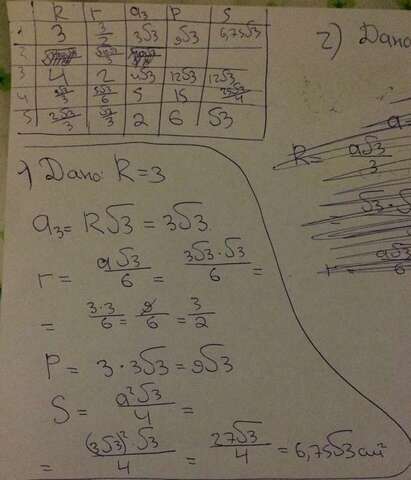 R r a₃ P S
1 3 3/2 3√3 9√3 6,75√3
2
3 4 2 4√3 12√3 12√3
4 5√3/3 5√3/6 5 15 25√3/4
5 2√3/3 √3/3 2 6 √3
1) Дано: R=3
a₃ = R√3 = 3√3
r = a√3/6 = 3√3·√3/6 =
= 3·3/6 = 9/6 = 3/2
P = 3·3√3 = 9√3
S = a²√3/4 =
= (3√3)²·√3/4 = 27√3/4 = 6,75√3 см²
2) Дано
a=
R = a√3/3